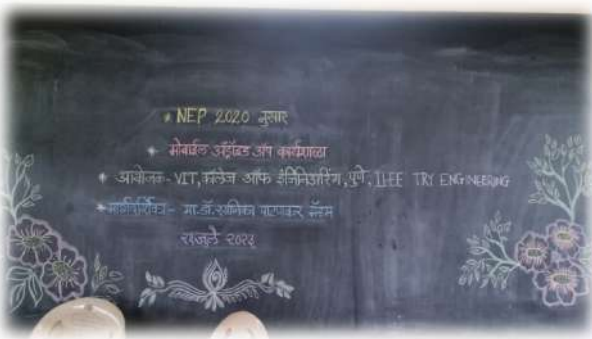 * NEP 2020 नुसार
* मोबाईल अँड्रॉइड ॲप कार्यशाळा
* आयोजक- VIT, कॉलेज ऑफ इंजिनिअरिंग, पुणे, IEEE TRY ENGINEERING
* मार्गदर्शिका - मा.डॉ. पाटणकर मॅडम
जुलै २०२३